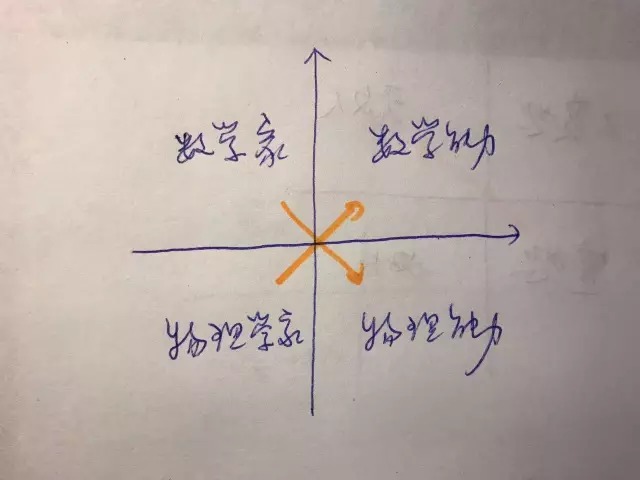 数学家 数学能力
物理学家 物理能力